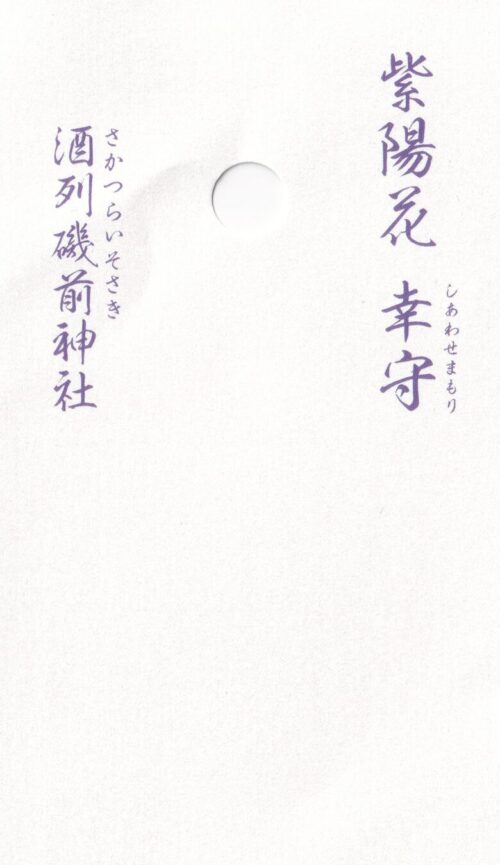 紫陽花 幸守
しあわせまもり
さかつらいそさき
酒列磯前神社